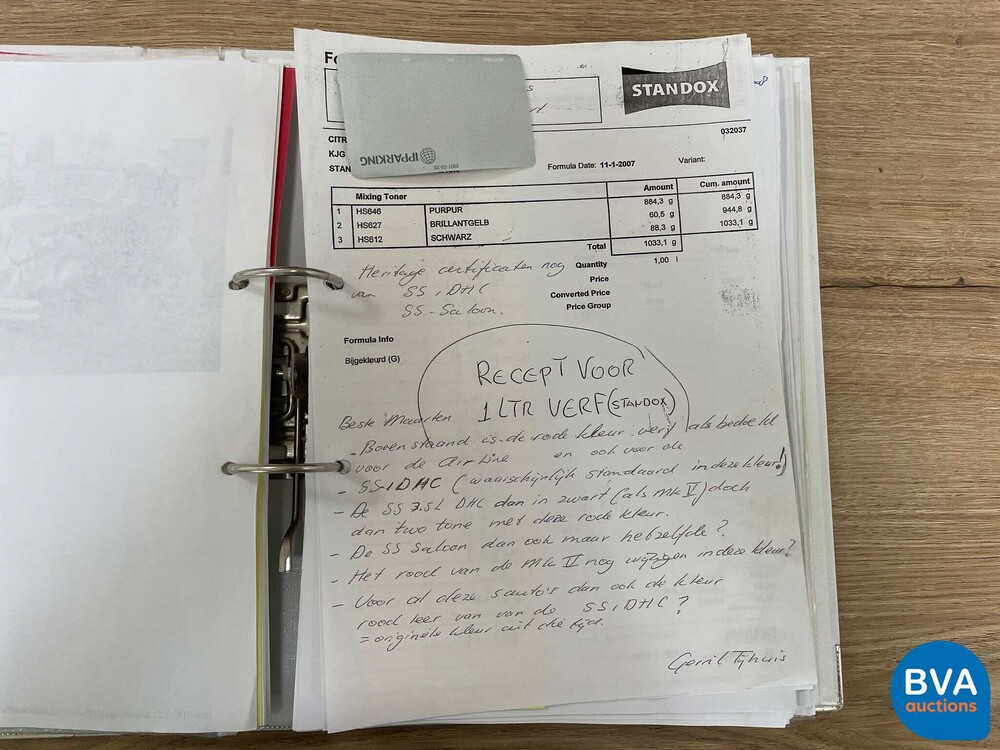 Fo
STANDOX
032037
CITR
KJG
STAN
IPPARKING
Formula Date: 11-1-2007 Variant:
Mixing Toner Amount Cum. amount
1 HS646 PURPUR 884,3 g 884,3 g
2 HS627 BRILLANTGELB 60,5 g 944,8 g
3 HS612 SCHWARZ 88,3 g 1033,1 g
Total 1033,1 g
Quantity 1,00 l
Price
Converted Price
Price Group
Heritage certificaten nog
van SS1DHC
SS-Saloon.
Formula Info
Bijgekleurd (G)
RECEPT VOOR
1 LTR VERF (STANDOX)
Beste Maarten
- Bovenstaand is de rode kleur verf als bedoeld
voor de Airline en ook voor de
- SS1DHC (waarschijnlijk standaard in deze kleur!)
- De SS 3.5L DHC dan in zwart (als MK V) doch
dan two tone met deze rode kleur.
- De SS Saloon dan ook maar hetzelfde?
- Het rood van de MK V nog wijzigen in deze kleur?
- Voor al deze 5 auto's dan ook de kleur
rood leer van van de SS1DHC?
= originele kleur uit die tijd.
Gerrit Tijhuis
BVA
auctions